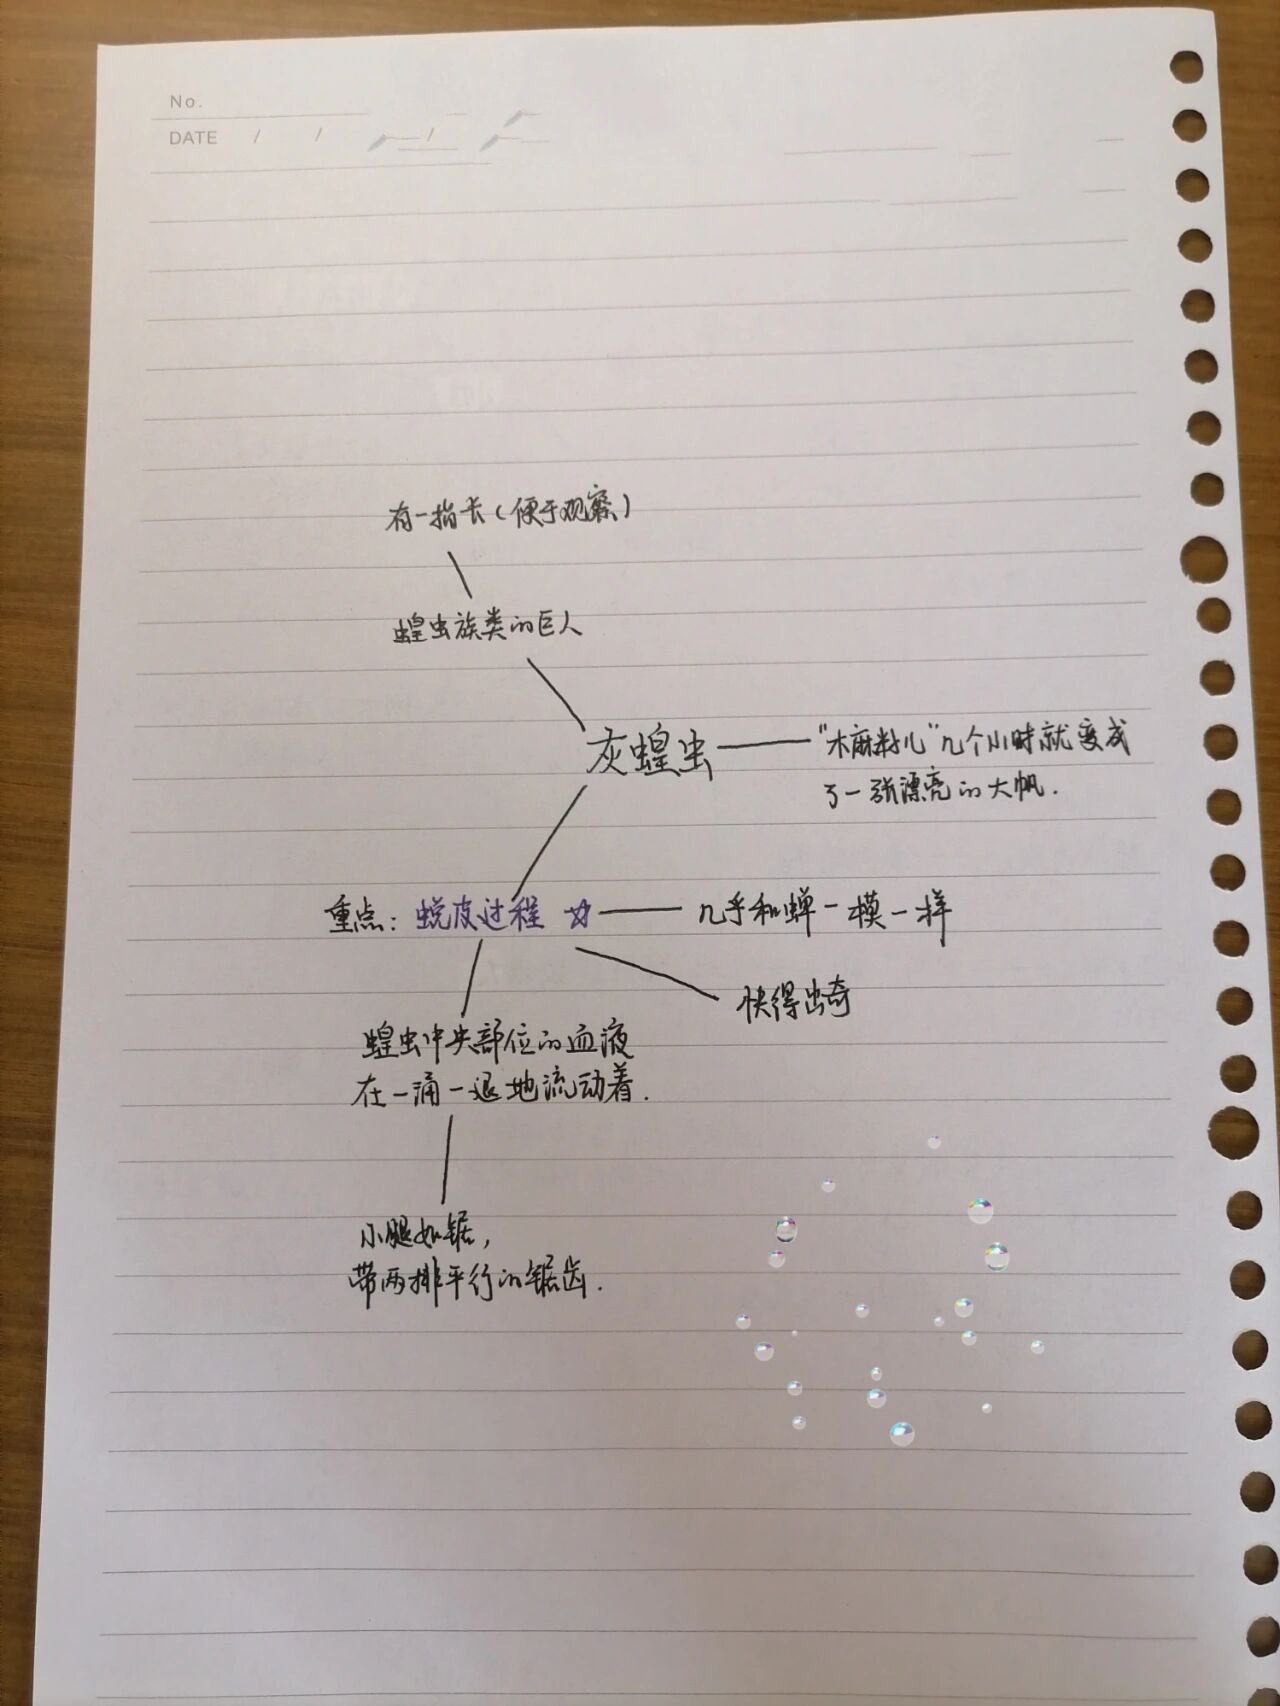 No.
DATE / / /
有一指长(便于观察)
蝗虫族类的巨人
灰蝗虫
"木麻料儿"几个小时就变成
了一张漂亮的大帆.
重点: 蜕皮过程 ☆
几乎和蝉一模一样
快得出奇
蝗虫中央部位的血液
在一涌一退地流动着.
小腿如锯,
带两排平行的锯齿.